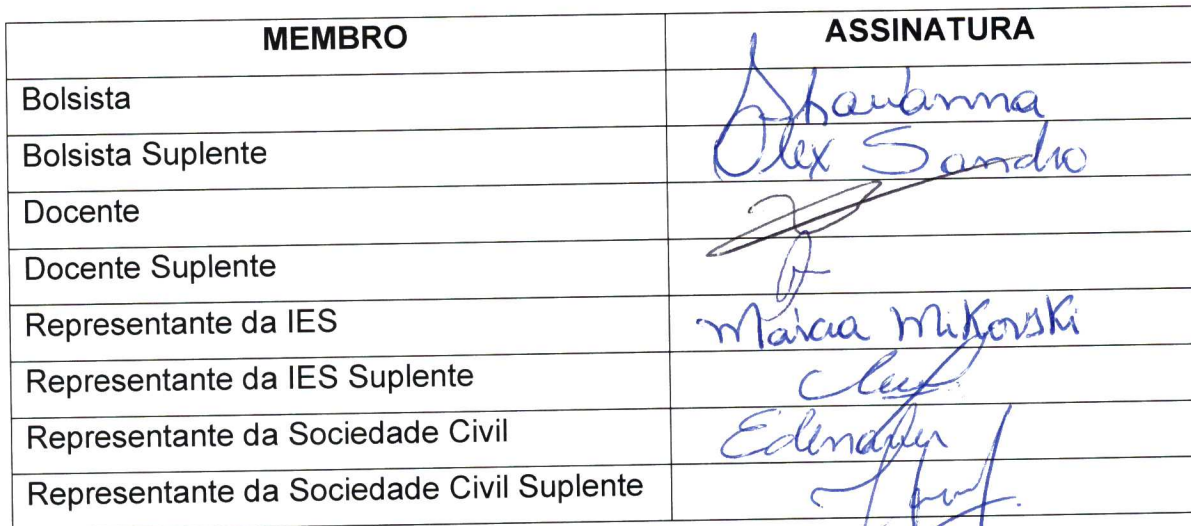 MEMBRO ASSINATURA
Bolsista Shauanna
Bolsista Suplente Alex Sandro
Docente
Docente Suplente
Representante da IES Márcia Mikovski
Representante da IES Suplente
Representante da Sociedade Civil
Representante da Sociedade Civil Suplente